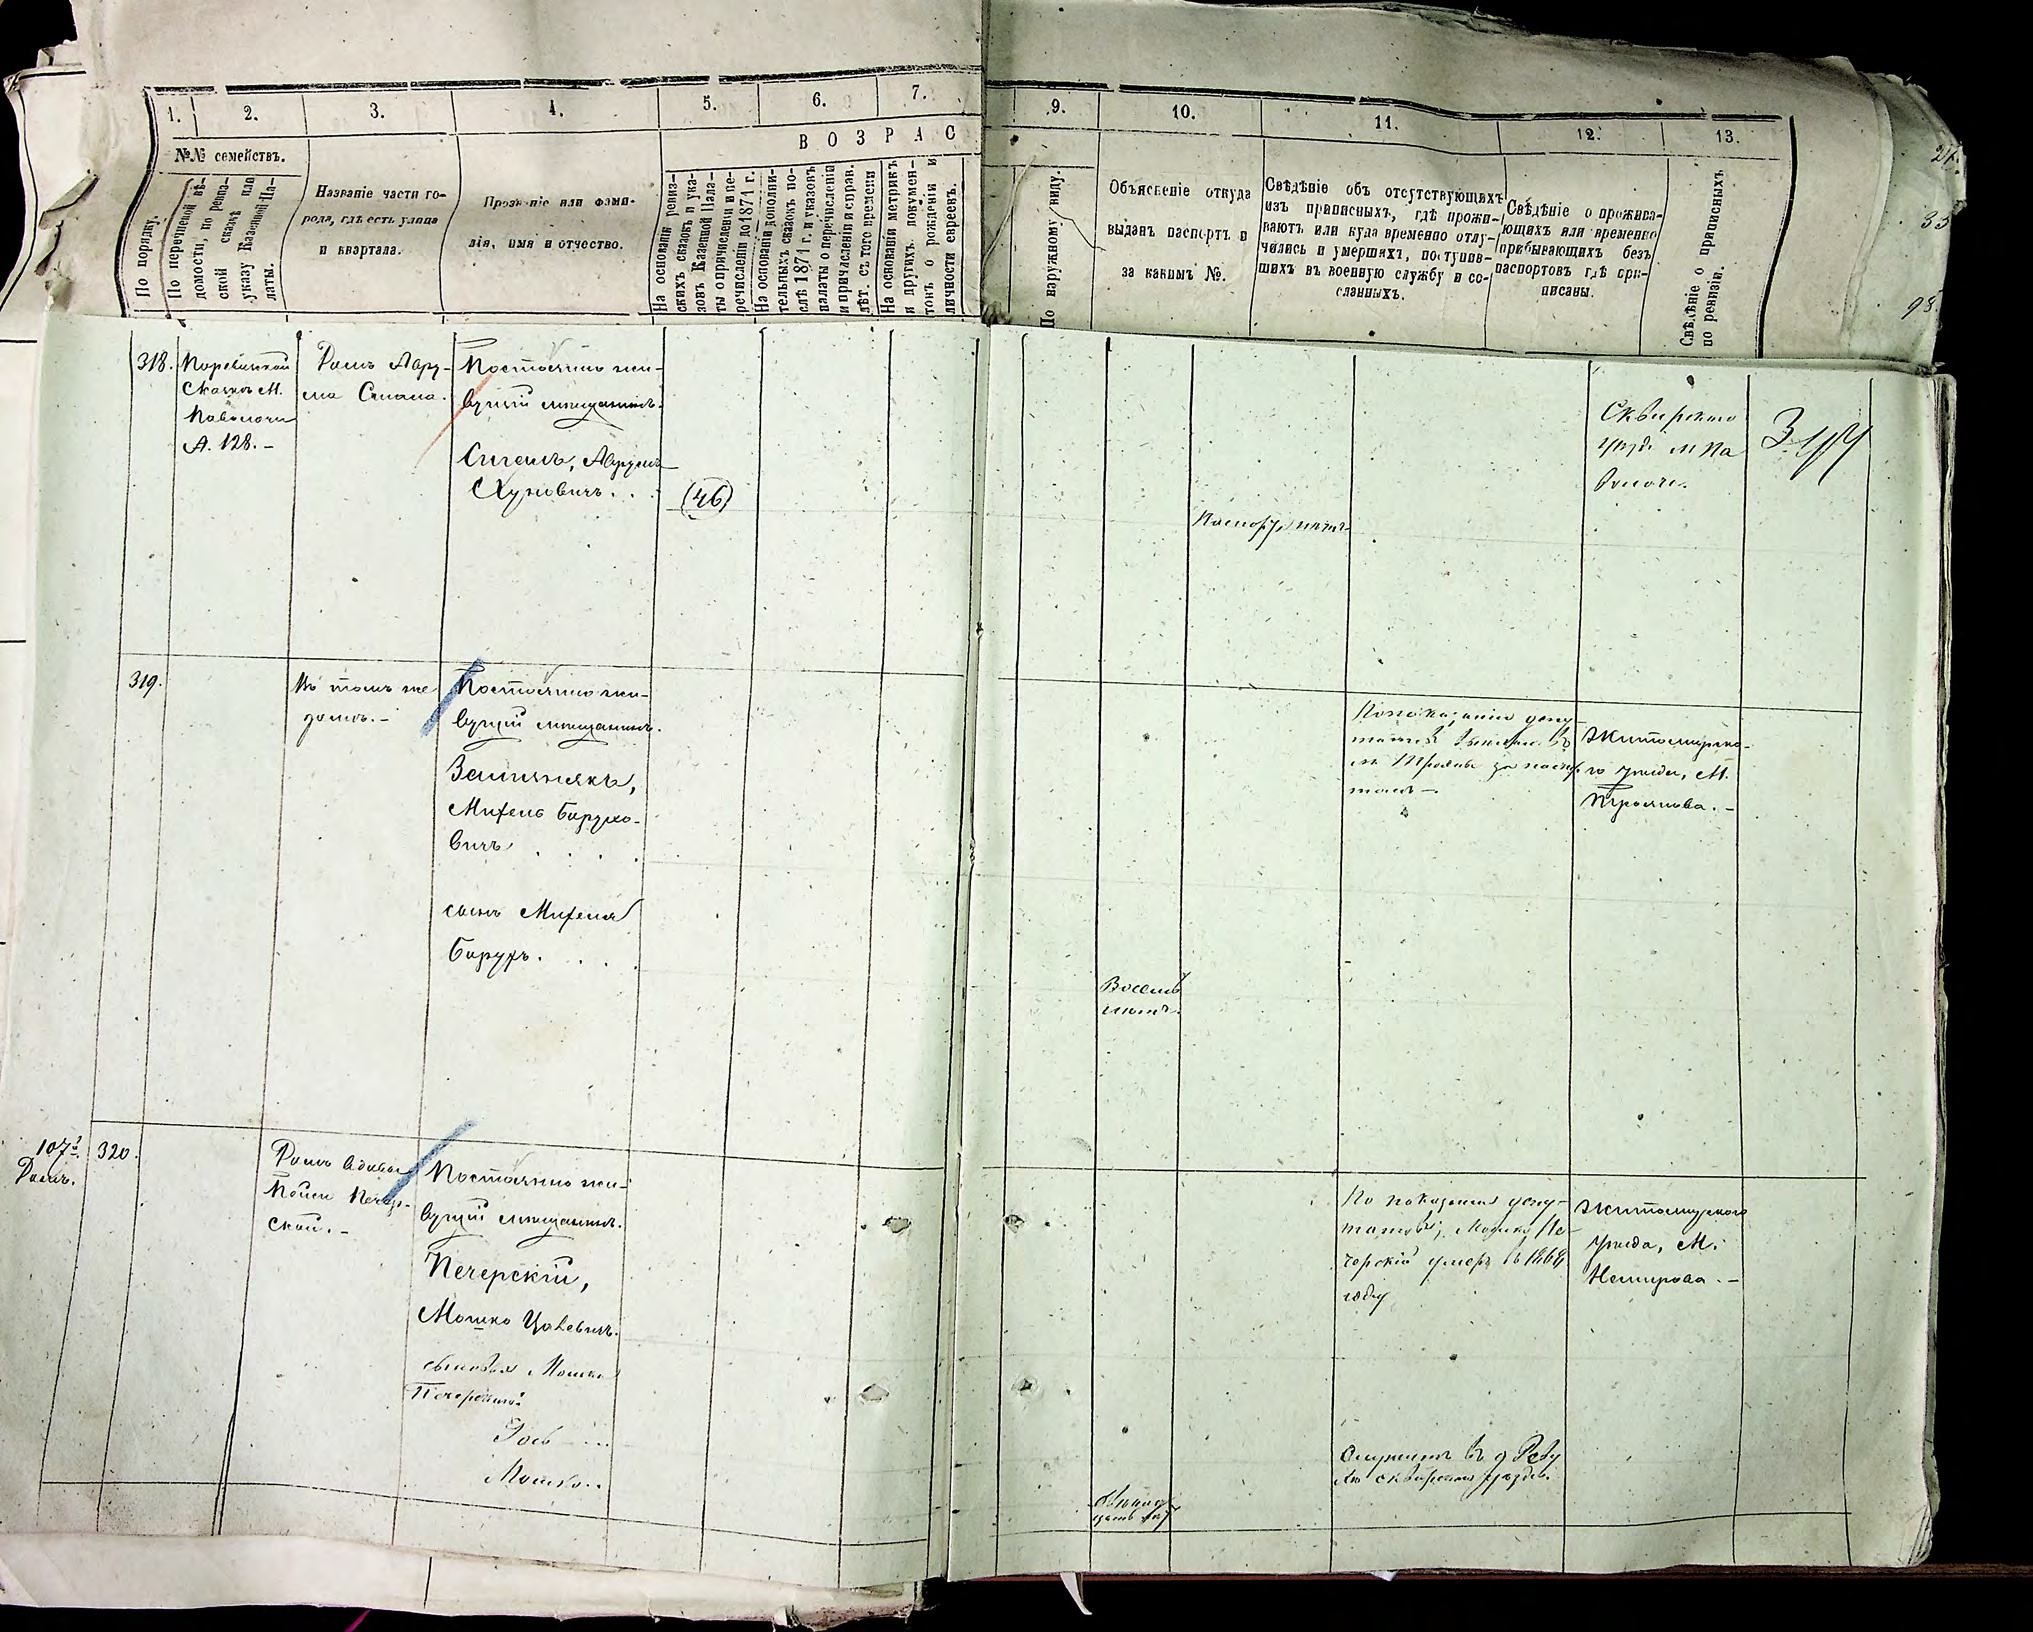 1.
2.
3.
4.
5.
6.
7.
9.
10.
11.
12.
13.
В О З Р А С
№№ семействъ.
По порядку.
По перечневой вѣ-
домости, по ревиз-
ской сказкѣ или
указу Казенной Па-
латы.
Названіе части го-
рода, гдѣ есть улица
и кварталa.
Прозваніе или фами-
лія, имя и отчество.
На основаніи ревиз-
скихъ сказокъ и ука-
зовъ Казенной Пала-
ты о причисленіи и пе-
речисленіи до 1874 г.
На основаніи дополни-
тельныхъ сказокъ по-
слѣ 1874 г. и указовъ
палаты о перечисленіи
и причисленіи и справ.
лѣт. съ того времени
На основаніи метрикъ
и другихъ докумен-
товъ о рожденіи и
личности евреевъ.
По наружному виду.
Объясненіе откуда
выданъ паспортъ и
за какимъ №.
Свѣдѣніе объ отсутствующихъ
изъ приписныхъ, гдѣ прожи-
ваютъ или куда временно отлу-
чились и умершихъ, поступив-
шихъ въ военную службу и со-
сланныхъ.
Свѣдѣніе о прожива-
ющихъ или временно
прибывающихъ безъ
паспортовъ гдѣ при-
писаны.
Свѣдѣніе о приписныхъ
по ревизіи.
318.
Поревизской
Сказкѣ М.
Паволочи
А. 128. –
Домъ Авру-
ма Сигала.
Постоянно жи-
вущій мѣщанинъ.
Сигалъ, Аврумъ
(46)
Паспорт. нѣтъ
Сквирскаго
уѣзд. м Па
волочи.
319.
Въ томъ же
домѣ. –
Постоянно жи-
вущій мѣщанинъ.
Михель Борухо-
вичъ . . . .
сынъ Михеля
Борухъ. . . .
Восемь
лѣтъ.
По показанію депу-
татовъ
Житомирска-
го уѣзда, М.
Троянова. –
107й
Домъ.
320.
Домъ вдовы
Печер-
ской. –
Постоянно жи-
вущій мѣщанинъ.
Печерскій,
Мошко
сыновья Мошка
Печерскаго:
Мошко..
По показанію депу-
татовъ, Мошко Пе-
черскій умеръ въ 1868
году
Житомирскаго
уѣзда, М.
Немирова. –
Сквирскомъ уѣздѣ.